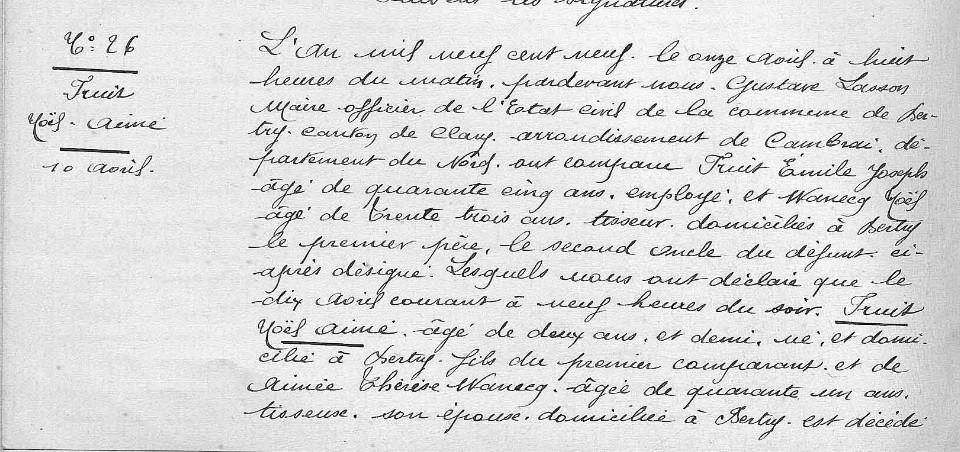 suivent les signatures.
N° 26
Fruit
Noël-Aimé
10 Avril.
L'An mil neuf cent neuf. le onze Avril à huit
heures du matin, pardevant nous. Gustave Lasson
Maire officier de l'Etat civil de la commune de Ber-
try. canton de Clary. arrondissement de Cambrai. dé-
partement du Nord. ont comparu Fruit Émile Joseph
âgé de quarante cinq ans. employé, et Wanecq Noël
âgé de trente trois ans. tisseur. domiciliés à Bertry
le premier père, le second oncle du défunt. ci-
après désigné. Lesquels nous ont déclaré que le
dix Avril courant à neuf heures du soir. Fruit
Noël Aimé. âgé de deux ans. et demi. né, et domi-
cilié à Bertry. fils du premier comparant. et de
Aimée Thérèse Wanecq. âgée de quarante un ans.
tisseuse. son épouse. domiciliée à Bertry. est décédé